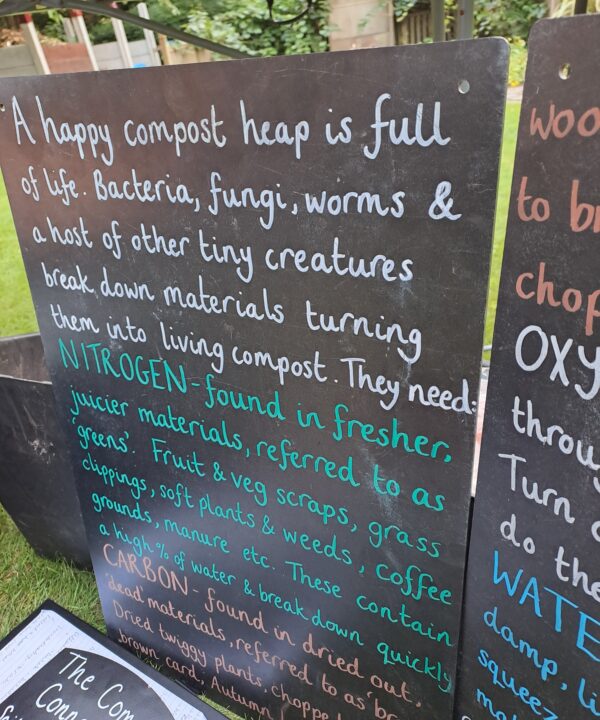 A happy compost heap is full
of life. Bacteria, fungi, worms &
a host of other tiny creatures
break down materials turning
them into living compost. They need:
NITROGEN - found in fresher,
juicier materials, referred to as
'greens'. Fruit & veg scraps, grass
clippings, soft plants & weeds, coffee
grounds, manure etc. These contain
a high % of water & break down quickly
CARBON - found in dried out,
'dead' materials, referred to as 'br
Dried twiggy plants, choppe
brown card, Autumn l
woo
to br
chop
OXY
throug
Turn c
do the
WATE
damp, li
squeez
The Com
Conn